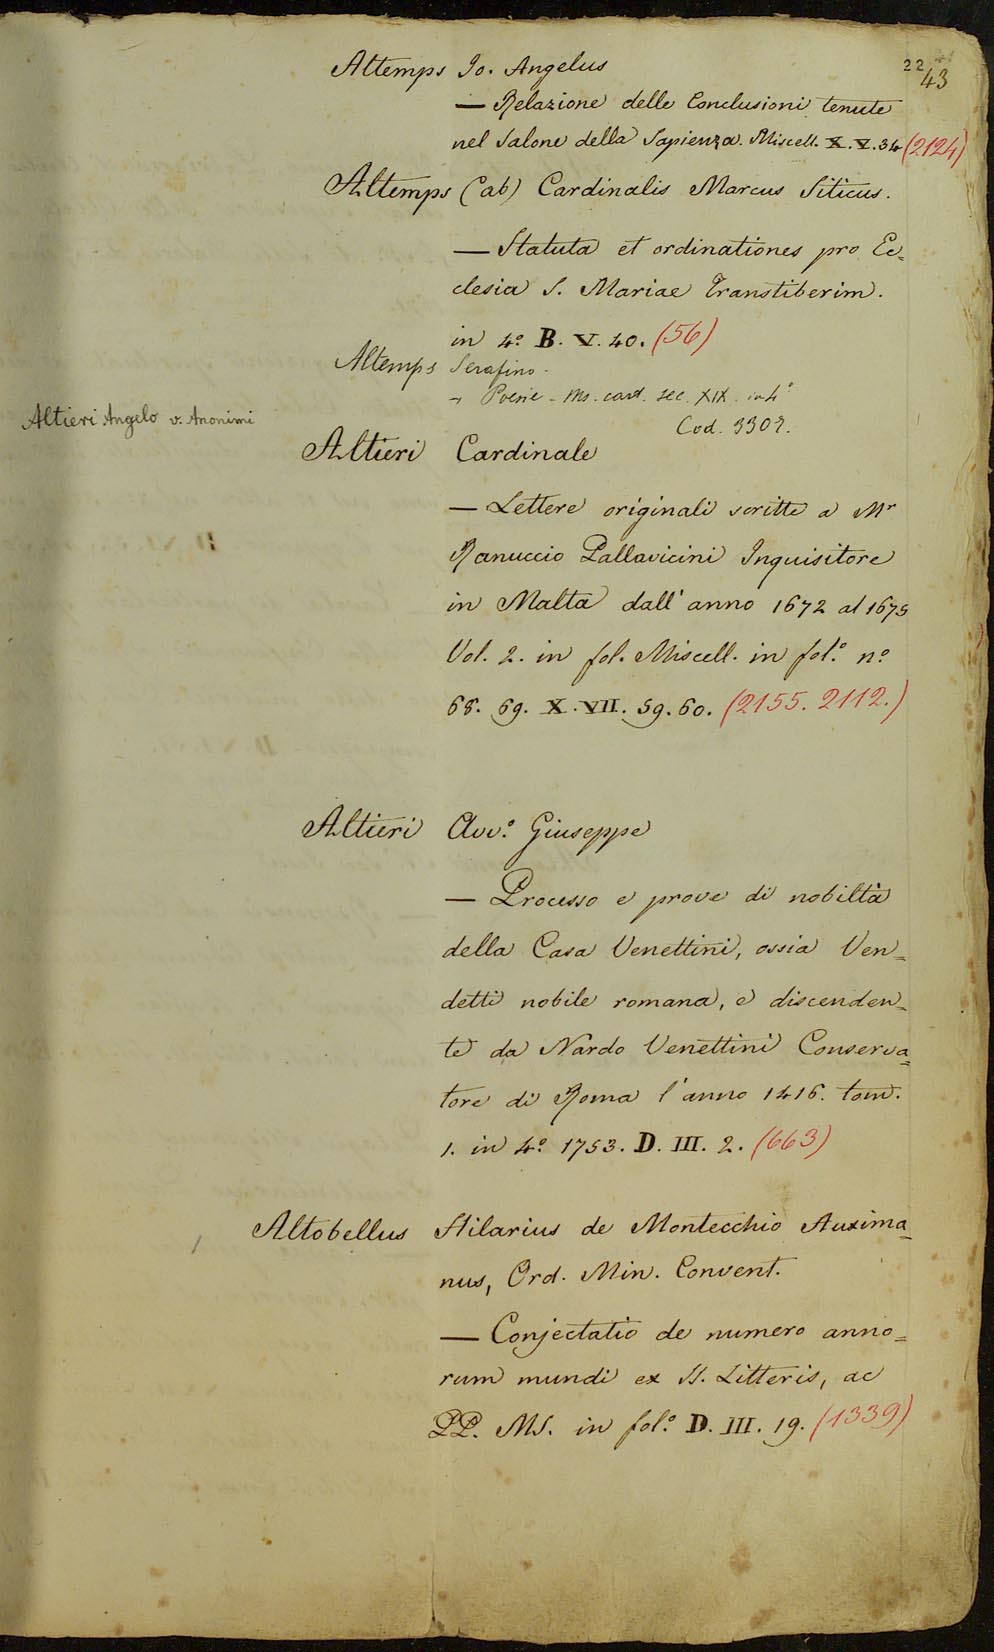 22
43
Altemps Jo. Angelus
— Relazione delle Conclusioni tenute
nel Salone della Sapienza. Miscell. X. V. 34 (2124)
Altemps (ab) Cardinalis Marcus Siticus.
— Statuta et ordinationes pro Ec=
clesia S. Mariae Transtiberim.
in 4.º B. V. 40. (56)
Altemps Serafino -
- Poesie - Ms. cart. sec. XIX. in 4º
Cod. 3307.
Altieri Angelo v. Anonimi
Altieri Cardinale
— Lettere originali scritte a Mr
Ranuccio Pallavicini Inquisitore
in Malta dall' anno 1672 al 1675
Vol. 2. in fol. Miscell. in fol.º n.º
68. 69. X. VII. 59. 60. (2155. 2112.)
Altieri Avv.º Giuseppe
— Processo e prove di nobiltà
della Casa Venettini, ossia Ven=
detti nobile romana, e discenden=
te da Nardo Venettini Conserva=
tore di Roma l'anno 1416. tom.
1. in 4.º 1753. D. III. 2. (663)
Altobellus Hilarius de Montecchio Auxima=
nus, Ord. Min. Convent.
— Conjectatio de numero anno=
rum mundi ex SS. Litteris, ac
PP. MS. in fol.º D. III. 19. (1339)